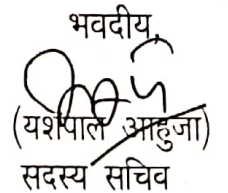 भवदीय,
(यशपाल आहुजा)
सदस्य सचिव